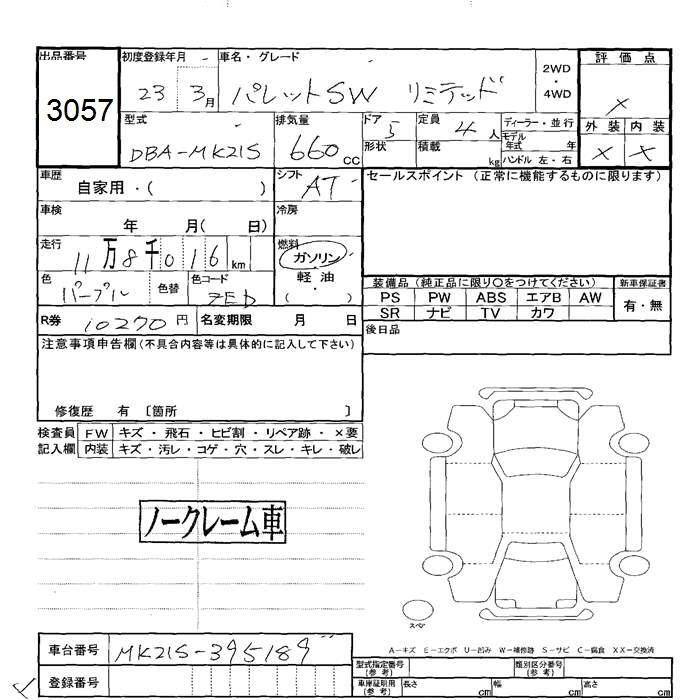 出品番号 初度登録年月 車名・グレード 2WD・4WD 評価点
3057 23 3月 パレットSW リミテッド ×
型式 排気量 ドア 5 定員 4人 ディーラー・並行 外装 内装
DBA-MK21S 660cc 形状 積載 kg モデル年式 年 × ×
ハンドル 左・右
車歴 自家用・( ) シフト AT セールスポイント (正常に機能するものに限ります)
車検 年 月( 日) 冷房
走行 11万8千016km 燃料 ガソリン
軽油
( )
色 パープル 色替 色コード ZED 装備品 (純正品に限り〇をつけてください) 新車保証書
PS PW ABS エアB AW 有・無
SR ナビ TV カワ
R券 10270円 名変期限 月 日 後日品
注意事項申告欄(不具合内容等は具体的に記入して下さい)
修復歴 有 [箇所 ]
検査員 FW キズ・飛石・ヒビ割・リペア跡・×要
記入欄 内装 キズ・汚レ・コゲ・穴・スレ・キレ・破レ
ノークレーム車
スペア
A-キズ E-エクボ U-凹み W-補修跡 S-サビ C-腐食 XX-交換済
車台番号 MK21S-395189
登録番号
型式指定番号(参考) 類別区分番号(参考)
車庫証明用(参考) 長さ cm 幅 cm 高さ cm